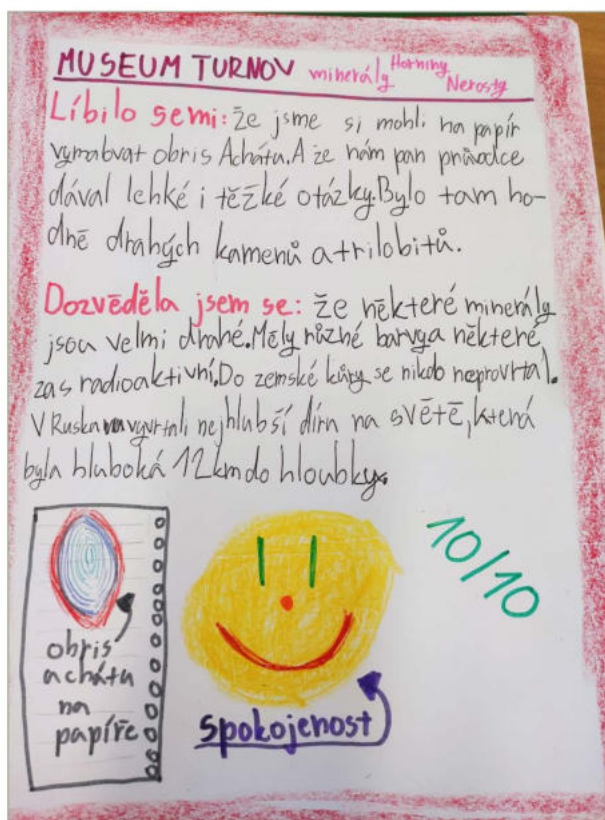 MUSEUM TURNOV minerály Horniny Nerosty
Líbilo semi: že jsme si mohli na papír
vyrabvat obris Achátu. A že nám pan průvodce
dával lehké i těžké otázky. Bylo tam ho-
dně drahých kamenů a trilobitů.
Dozvěděla jsem se: že některé minerály
jsou velmi drahé. Měly různé barvy a některé
zas radioaktivní. Do zemské kůry se nikdo neprovrtal.
V Ruska vyvrtali nejhlubší díru na světě, která
byla hluboká 12 km do hloubky.
10/10
obris
achátu
na
papíře
spokojenost